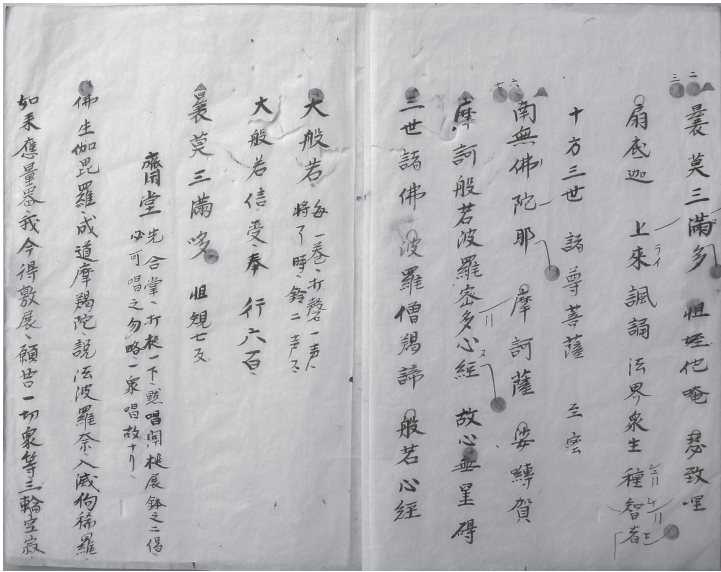 曩莫三滿多 怛姪他唵 瑟致哩
扇底迦 上來諷誦 法界衆生 種智
十方三世 諸尊菩薩 至宻
南無佛陀耶 摩訶薩 婆縛賀
摩訶般若波羅密多心經 故心無罣碍
三世諸佛 波羅僧羯諦 般若心經
大般若 每一卷、打磬一声、
將了時、鈴二声、
大般若信受、奉行六百、
曩莫三滿哆 怛規七反
齋堂 先合掌、打槌一下、黙唱聞槌展鉢之二偈、
必可唱之勿略、一衆唱故ナリ、
佛生伽毘羅、成道摩羯陀、說法波羅奈、入滅拘稀羅、
如来應量器、我今得敷展、願共一切衆、等三輪空寂、